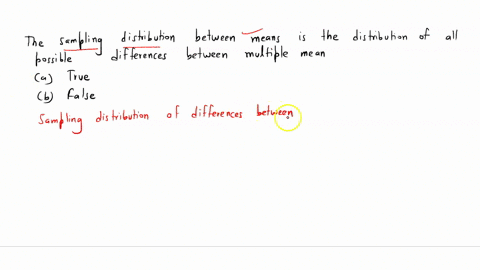 The sampling distribution between means is the distribution of all
possible differences between multiple mean
(a) True
(b) False
Sampling distribution of differences between